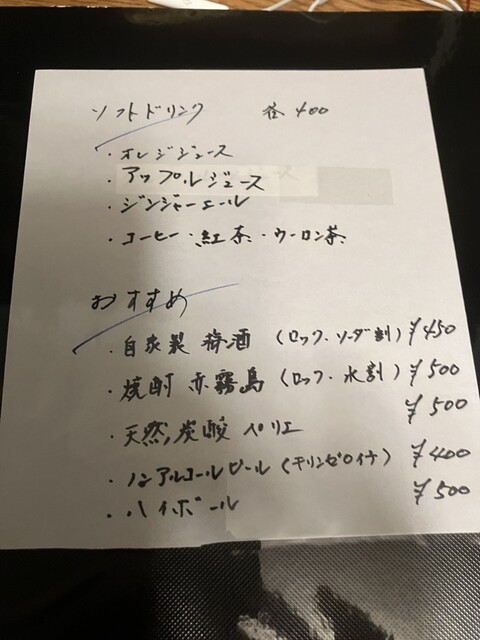 ソフトドリンク 各 400
・オレンジジュース
・アップルジュース
・ジンジャーエール
・コーヒー・紅茶・ウーロン茶
おすすめ
・自家製 梅酒 (ロック・ソーダ割) ¥450
・焼酎 赤霧島 (ロック・水割) ¥500
・天然炭酸 ペリエ ¥500
・ノンアルコールビール (キリンゼロイチ) ¥400
・ハイボール ¥500